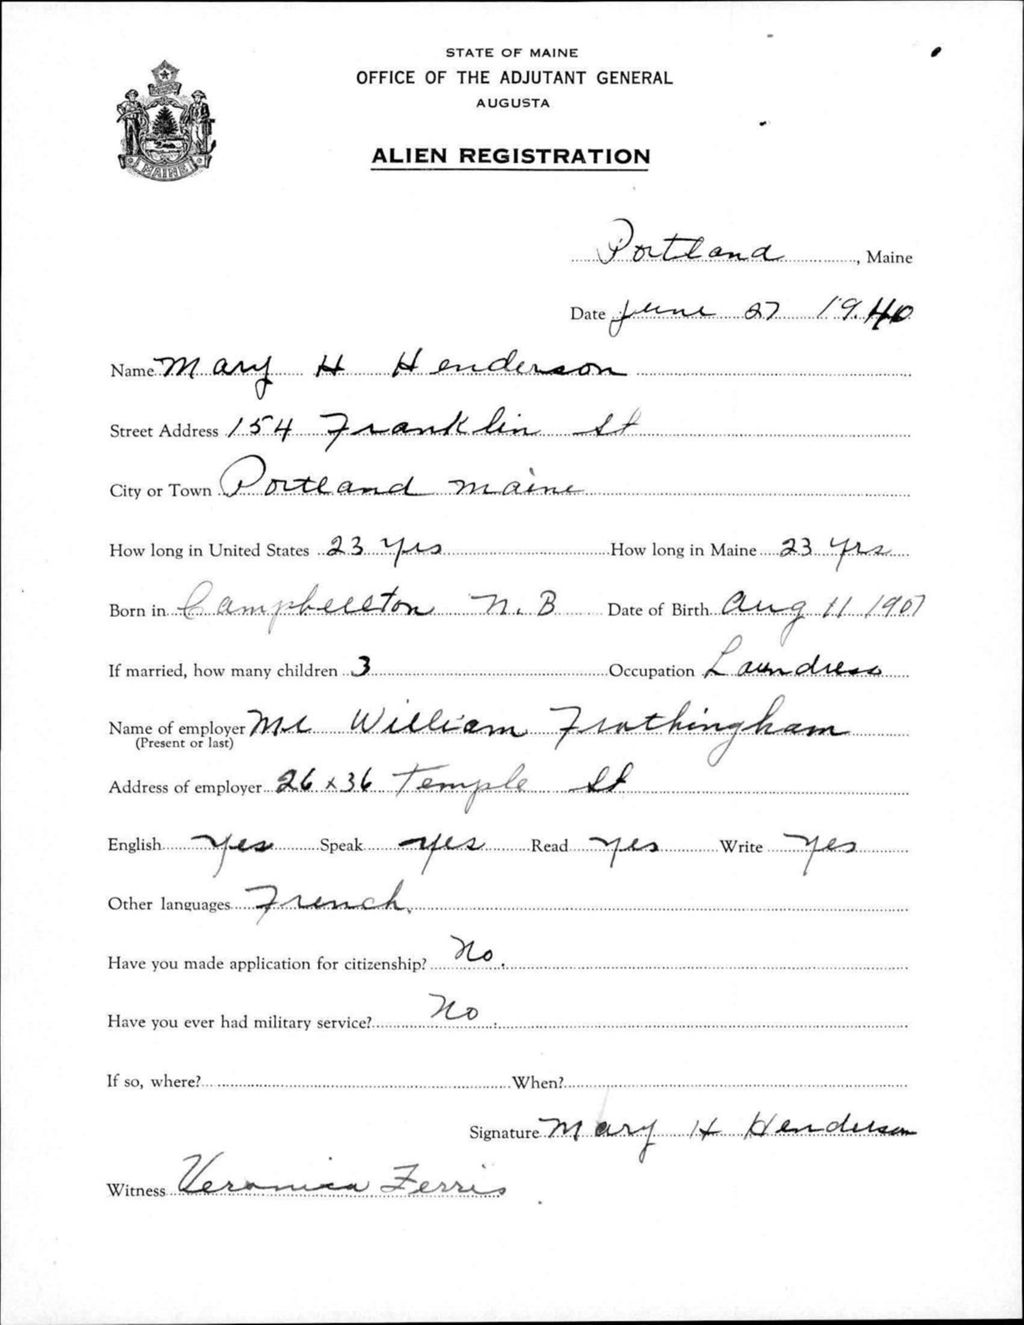 STATE OF MAINE
OFFICE OF THE ADJUTANT GENERAL
AUGUSTA
ALIEN REGISTRATION
MAINE
Portland, Maine
Date June 27 1940
Name Mary H Henderson
Street Address 154 Franklin St
City or Town Portland Maine
How long in United States 23 yrs How long in Maine 23 yrs
Born in Campbellton N. B Date of Birth Aug 11 1907
If married, how many children 3 Occupation Laundress
Name of employer Mr William Frothingham
(Present or last)
Address of employer 26 x 36 Temple St
English yes Speak yes Read yes Write yes
Other languages French
Have you made application for citizenship? No.
Have you ever had military service? No.
If so, where? When?
Signature Mary H Henderson
Witness Veronica Ferris